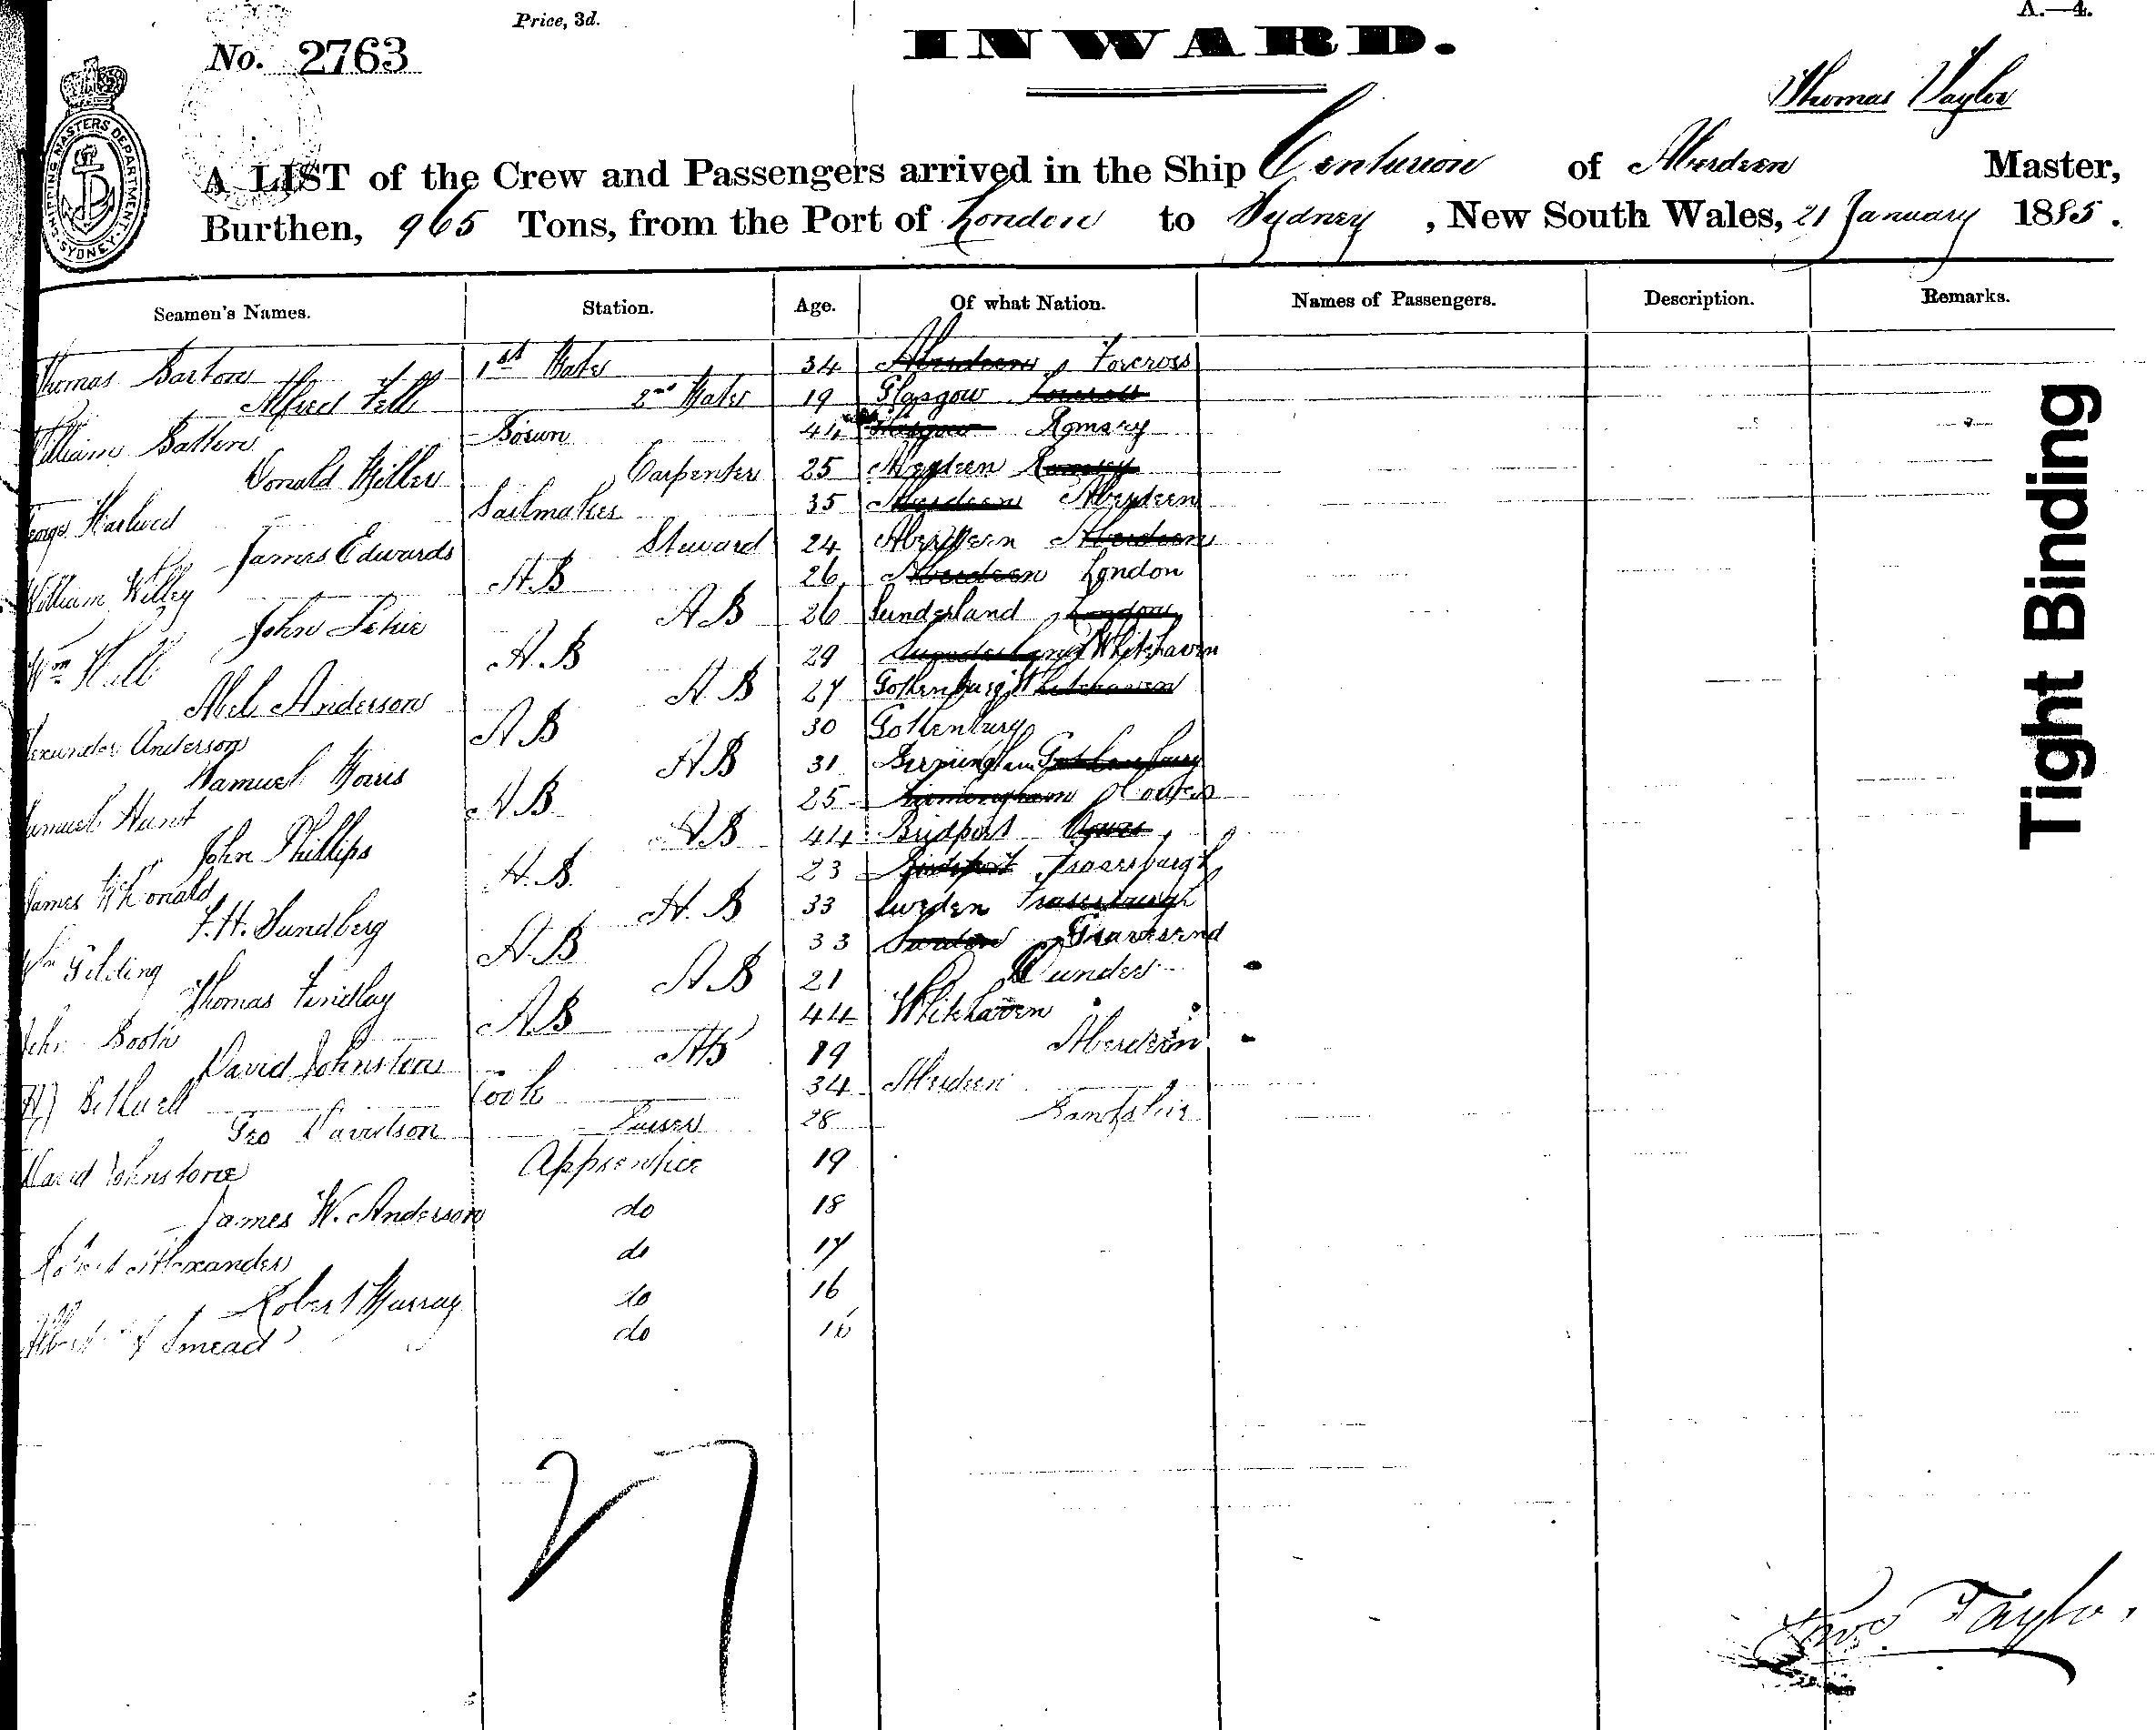 Price, 3d.
A.—4.
No. 2763
INWARD.
Thomas Taylor
SHIPPING MASTERS DEPARTMENT SYDNEY
A LIST of the Crew and Passengers arrived in the Ship Centurion of Aberdeen Master,
Burthen, 965 Tons, from the Port of London to Sydney, New South Wales, 21 January 1885.
Seamen's Names. Station. Age. Of what Nation. Names of Passengers. Description. Remarks.
Thomas Barton 1st Mate 34 Aberdeen Torcross
Alfred Fell 2nd Mate 19 Glasgow Torcross
William Batten Bosun 44 Glasgow Romsey
Donald Miller Carpenter 25 Aberdeen Romsey
George Harlwed Sailmaker 35 Aberdeen Aberdeen
James Edwards Steward 24 Aberdeen Aberdeen
William Willey AB 26 Aberdeen London
John Lekie AB 26 Sunderland London
Wm Hall AB 29 Sunderland Whitehaven
Abel Anderson AB 27 Gottenburg Whitehaven
Alexander Anderson AB 30 Gottenburg
Samuel Morris AB 31 Birmingham Gottenburg
Samuel Hunt AB 25 Birmingham Cowes
John Phillips AB 44 Bridport Cowes
James McDonald AB 23 Bridport Fraserburgh
F. H. Sundberg AB 33 Sweden Fraserburgh
Wm Gilding AB 33 Sweden Gravesend
Thomas Findlay AB 21 Dundee
John Booth AB 44 Whitehaven
David Johnston AB 19 Aberdeen
Bethuell Cook 34 Aberdeen
Geo Davidson Purser 28 Banfshir
David Johnstone Apprentice 19
James W. Anderson do 18
Robert Alexander do 17
Robert Murray do 16
Albert Smead do 16
27
Thos. Taylor
Tight Binding